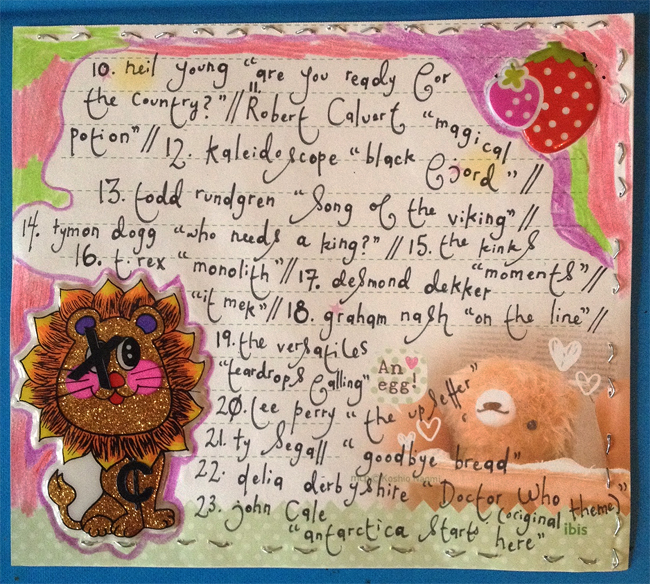 10. neil young "are you ready for
the country?"// 11. Robert Calvert "magical
potion"// 12. kaleidoscope "black
fjord"//
13. todd rundgren "song of the viking"//
14. tymon dogg "who needs a king?"// 15. the kinks
"moments"//
16. t. rex "monolith"// 17. desmond dekker
"it mek"// 18. graham nash "on the line"//
19. the versatiles
"teardrops falling"
An
egg!
20. lee perry "the upsetter"
21. ty segall "goodbye bread"
22. delia derbyshire "Doctor Who
(original theme)"
23. john Cale
"antarctica starts here"
ibis